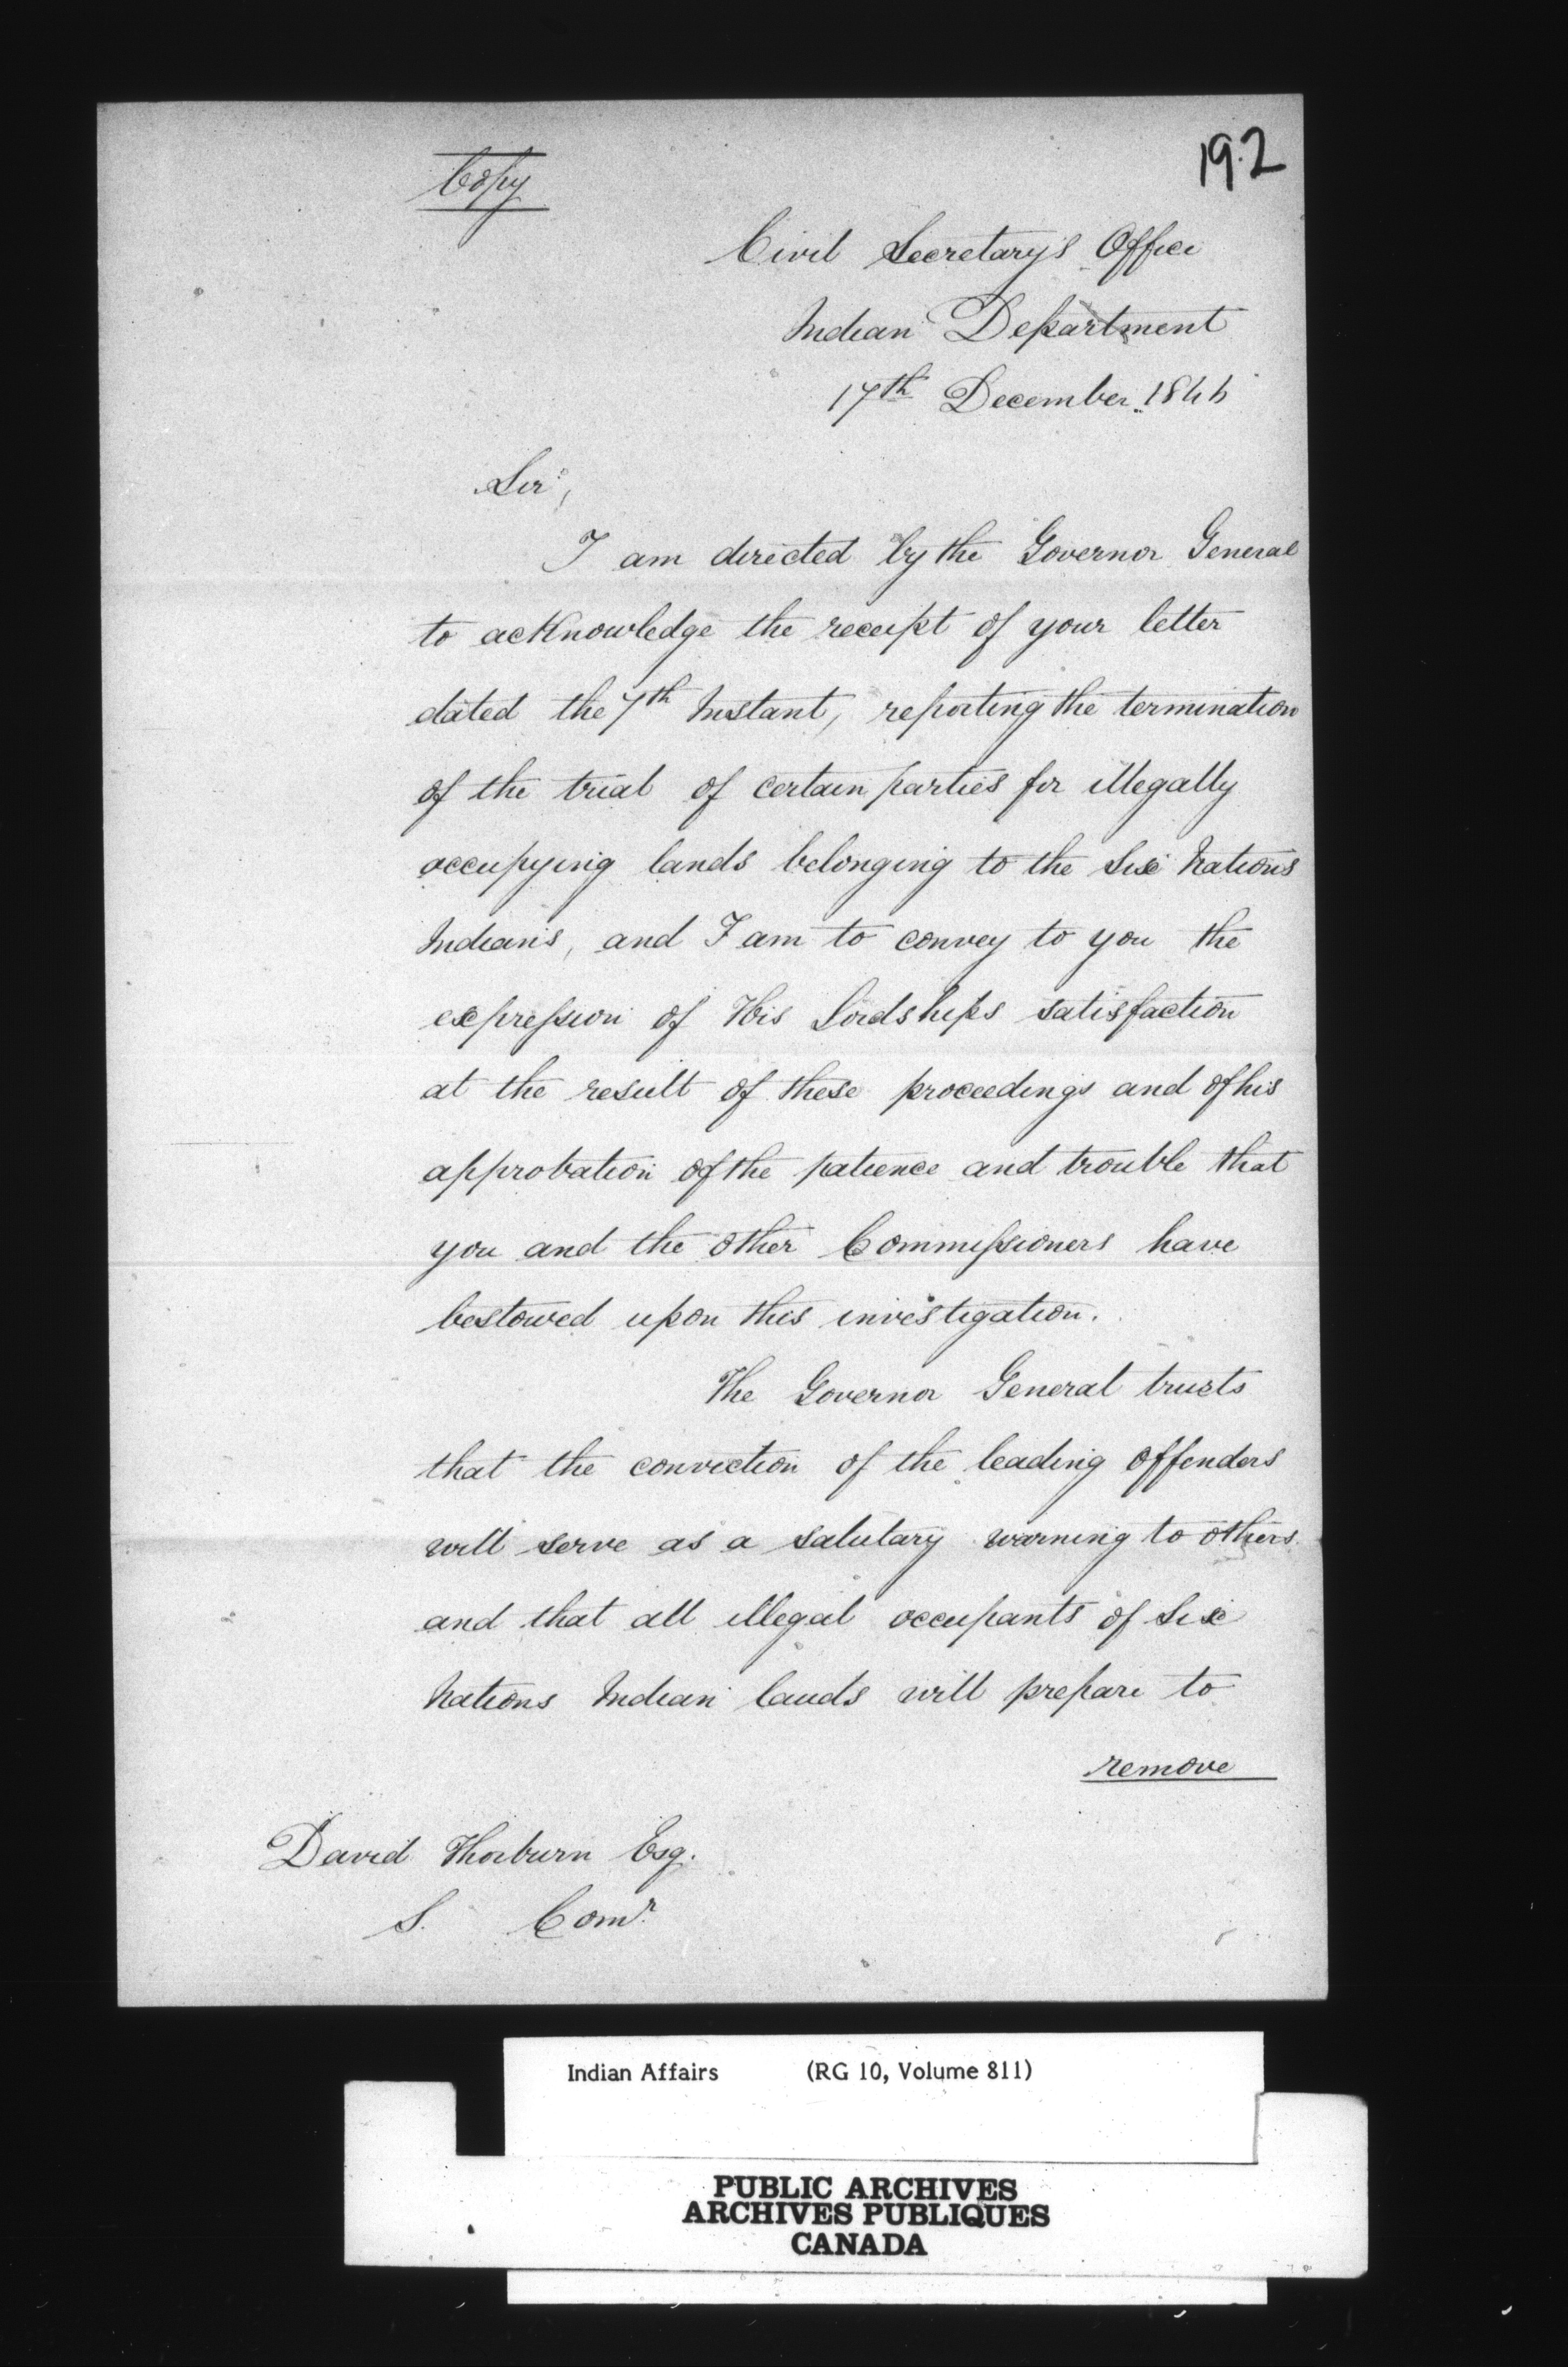 Copy
192
Civil Secretary's Office
Indian Department
17th December 1846
Sir,
I am directed by the Governor General
to acKnowledge the receipt of your letter
dated the 7th Instant, reporting the termination
of the trial of certain parties for illegally
occupying lands belonging to the Six Nations
Indians, and I am to convey to you the
expression of His Lordships satisfaction
at the result of these proceedings and of his
approbation of the patience and trouble that
you and the other Commissioners have
bestowed upon this investigation.
The Governor General trusts
that the conviction of the leading offenders
will serve as a salutary warning to others
and that all illegal occupants of Six
Nations Indian lands will prepare to
remove
David Thorburn Esq.
S. Comr.
Indian Affairs (RG 10, Volume 811)
PUBLIC ARCHIVES
ARCHIVES PUBLIQUES
CANADA